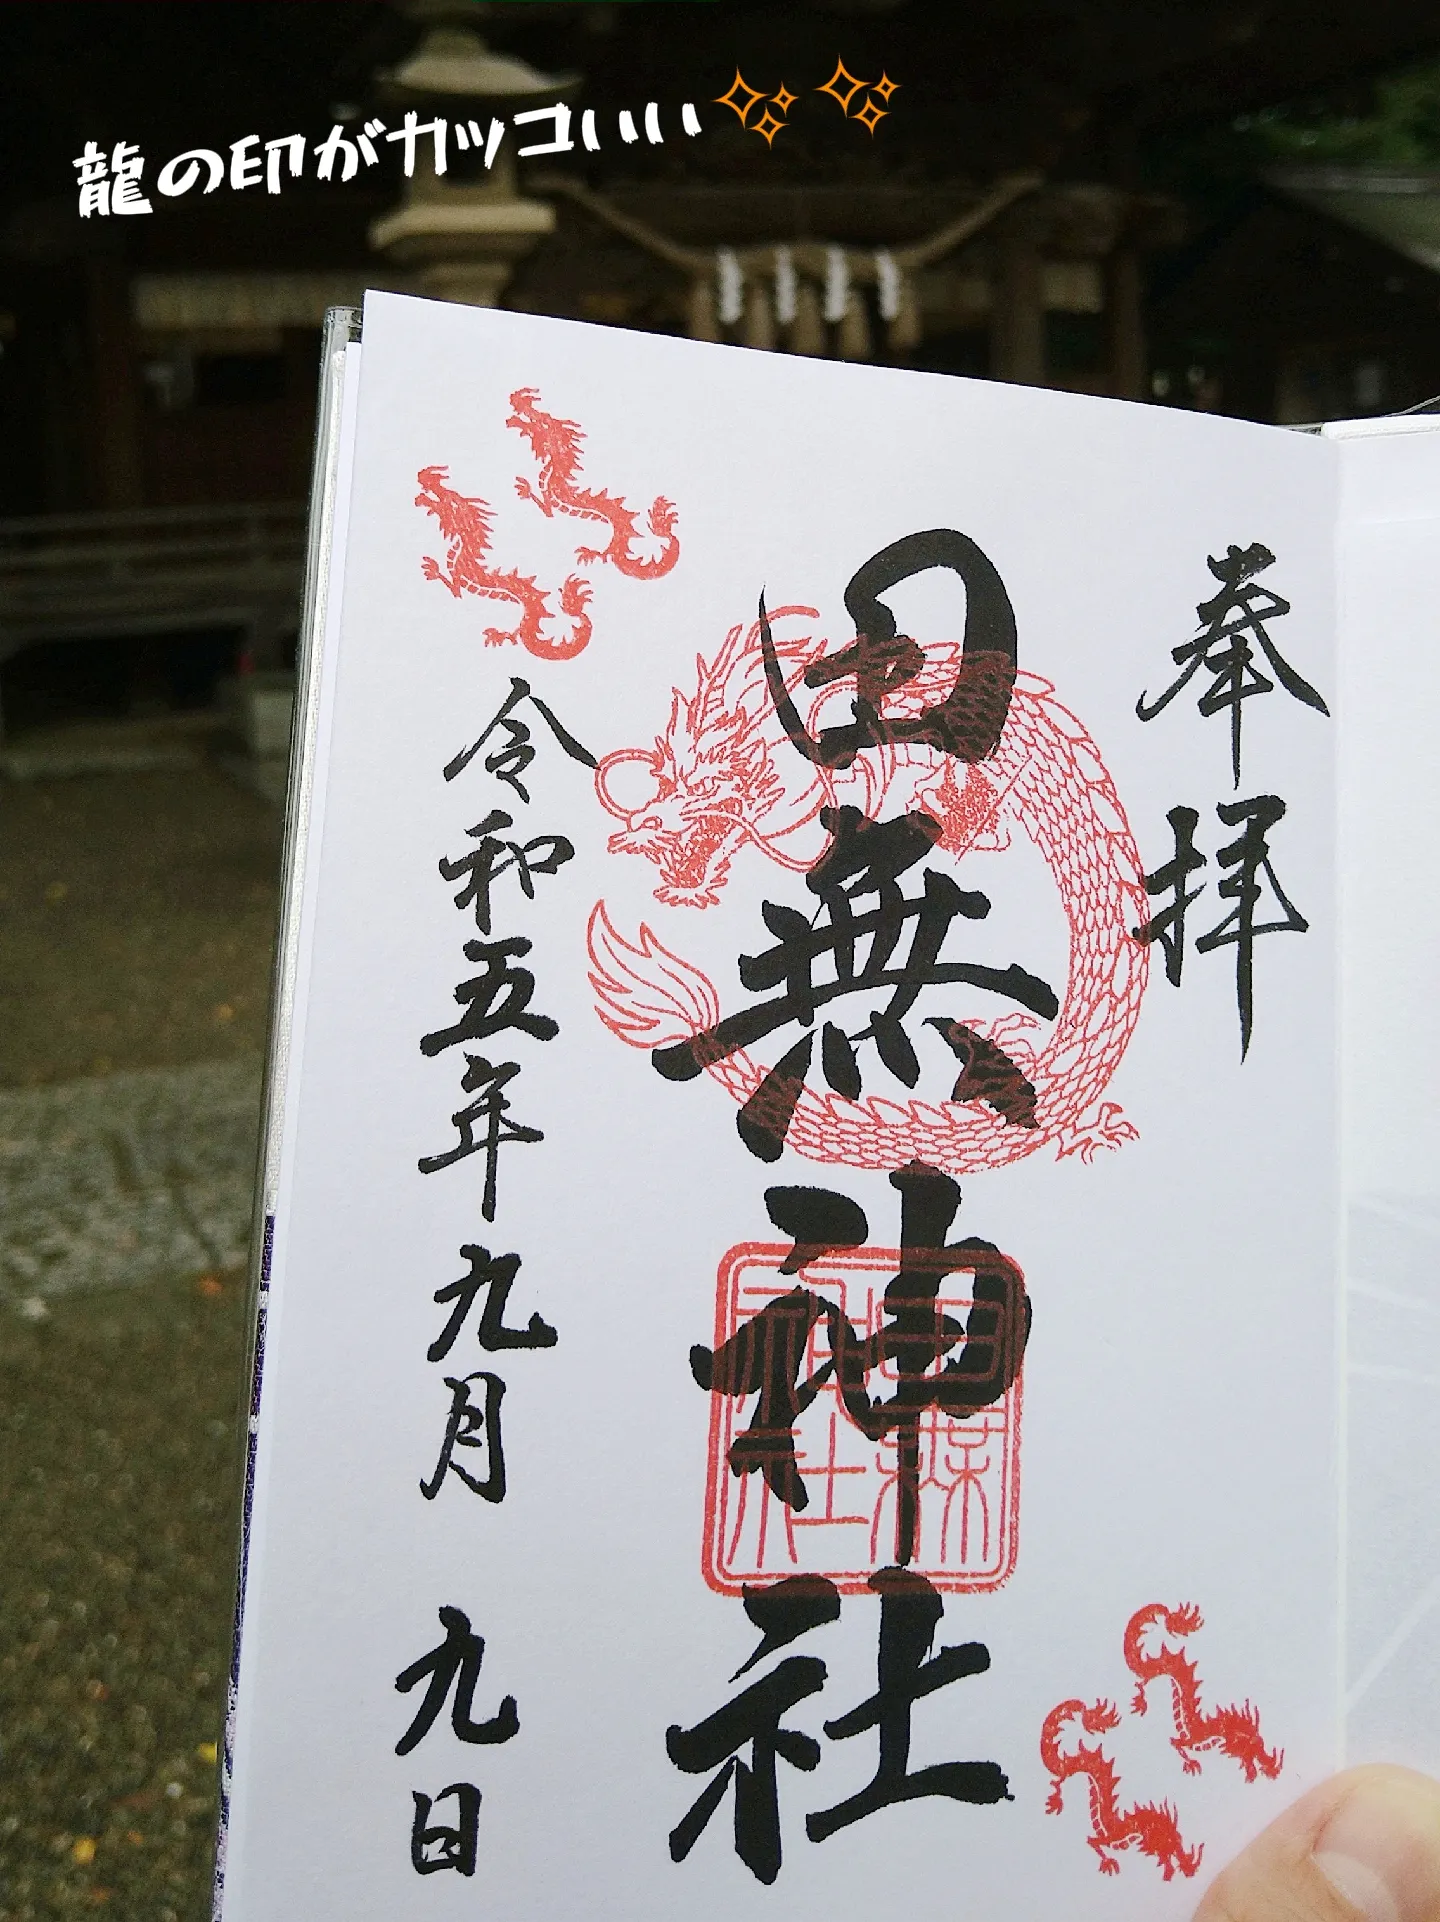 龍の印がカッコいい
奉拝
田無神社
令和五年九月九日